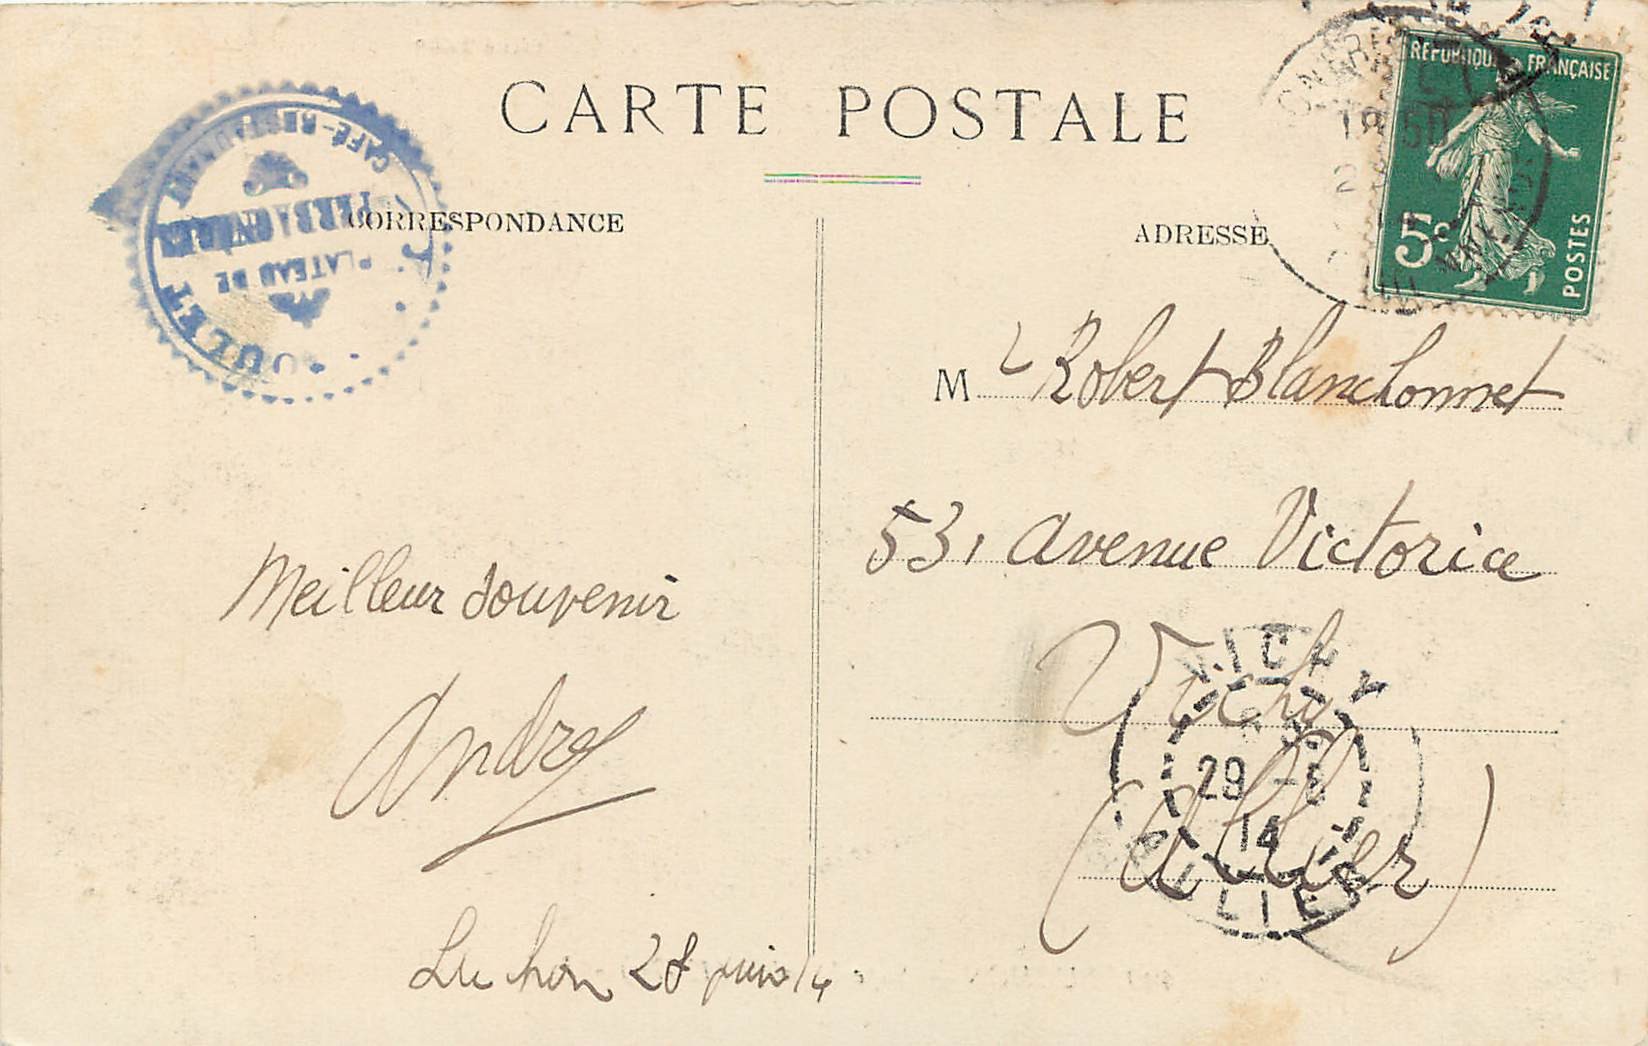 CARTE POSTALE
CORRESPONDANCE
ADRESSE
RÉPUBLIQUE FRANÇAISE
5c
POSTES
CAFÉ-RESTAURANT
PLATEAU DE
M r Robert Blanchonnet
53, avenue Victoria
Vichy
(Allier)
VICHY
29 -6
14
ALLIER
Meilleur souvenir
André
Luchon 28 juin 14